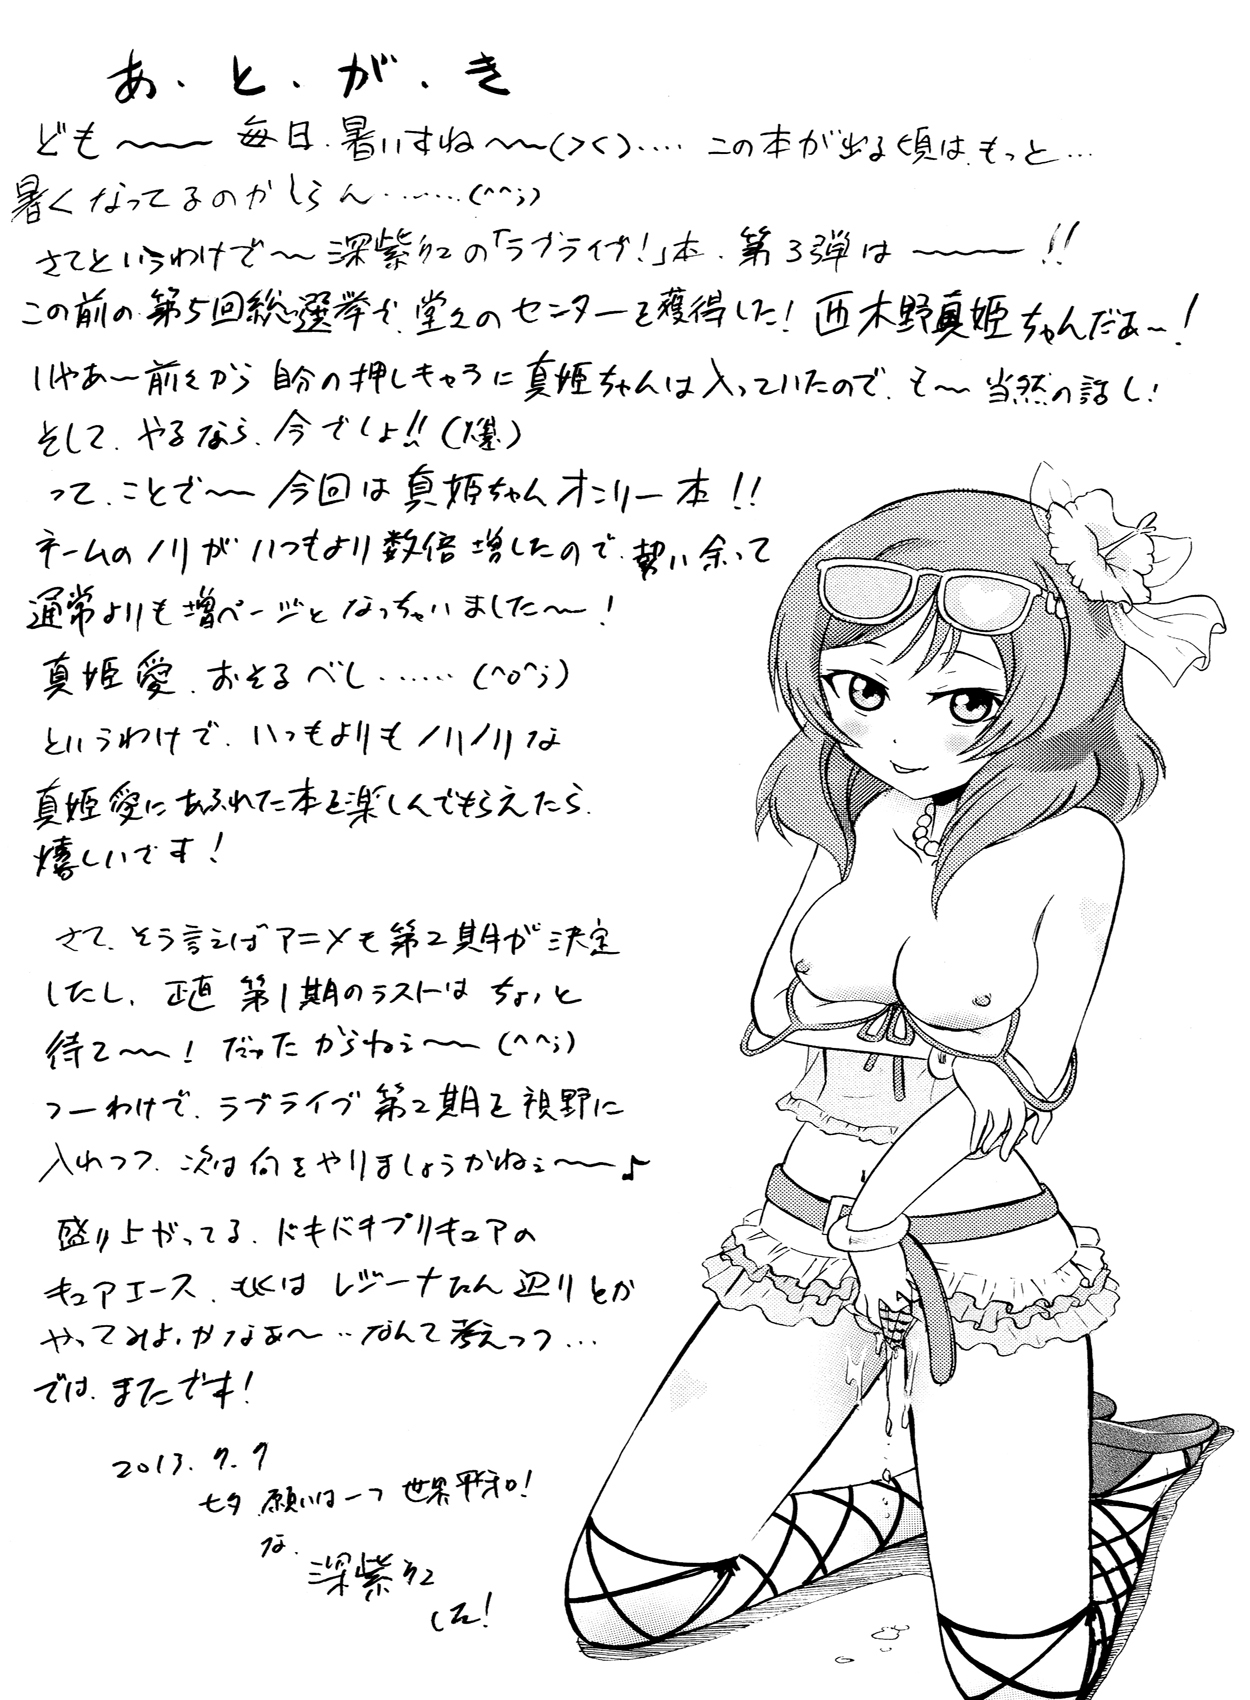 あ・と・が・き
ども〜〜〜 毎日、暑いすね〜〜(><)‥‥ この本が出る頃は、もっと…
暑くなってるのかしらん‥‥‥(^^;)
さてというわけで〜 深紫紅の「ラブライブ!」本、第3弾は〜〜〜!!
この前の第5回総選挙で、堂々のセンターを獲得した! 西木野真姫ちゃんだぁ〜!
いやあ〜前々から自分の押しキャラに真姫ちゃんは入っていたので、も〜当然の話し!
そして、やるなら、今でしょ!!(爆)
って、ことで〜〜 今回は真姫ちゃんオンリー本!!
ネームのノリがいつもより数倍増したので、勢い余って
通常よりも増ページとなっちゃいました〜〜!
真姫愛、おそるべし‥‥‥(^o^;)
というわけで、いつもよりもノリノリな
真姫愛にあふれた本を楽しんでもらえたら、
嬉しいです!
さて、そう言えばアニメも第2期が決定
したし、正直 第1期のラストはちょいと
待て〜〜! だったからねぇ〜〜(^^;)
つーわけで、ラブライブ第2期を視野に
入れつつ、次は何をやりましょうかねぇ〜〜♪
盛り上がってる、ドキドキプリキュアの
キュアエース、もしくはレジーナたん辺りとか
やってみよぃかなぁ〜‥なんて考えつつ…
では、またです!
2013.7.7
七夕 願いは一つ 世界平和!
な、
深紫紅
した!